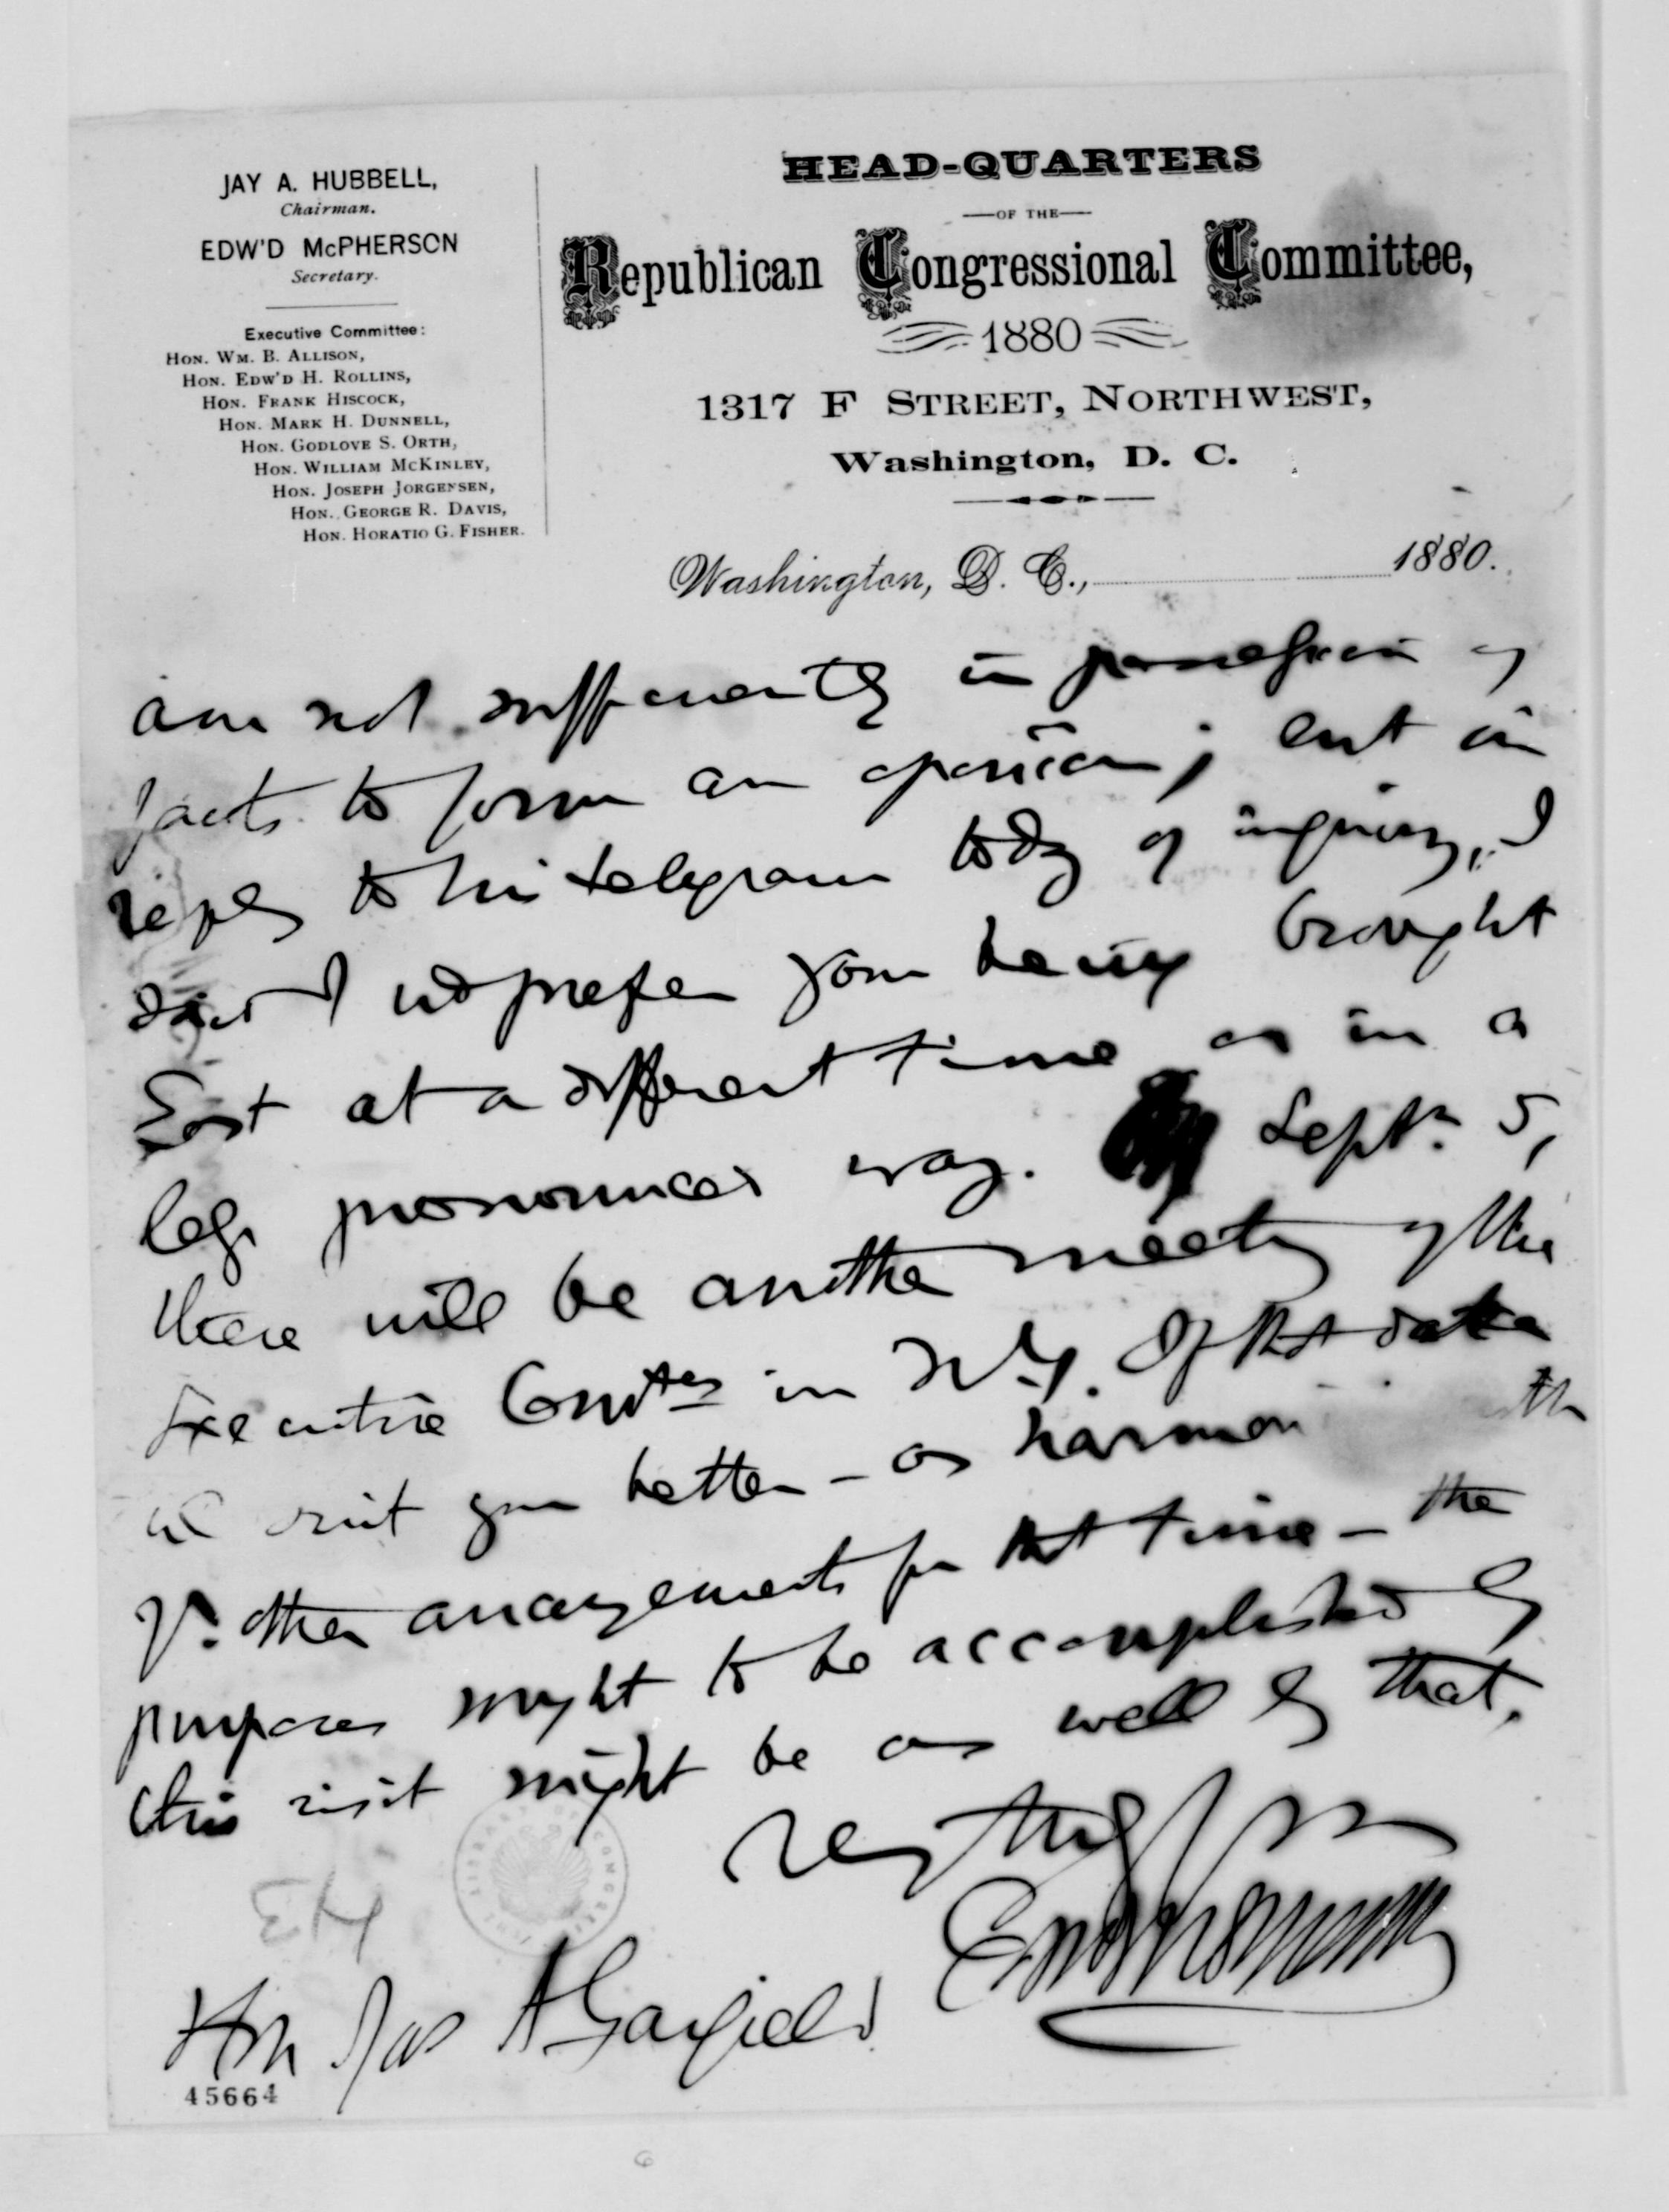 JAY A. HUBBELL,
Chairman.
EDW'D McPHERSON
Secretary.
Executive Committee:
HON. WM. B. ALLISON,
HON. EDW'D H. ROLLINS,
HON. FRANK HISCOCK,
HON. MARK H. DUNNELL,
HON. GODLOVE S. ORTH,
HON. WILLIAM McKINLEY,
HON. JOSEPH JORGENSEN,
HON. GEORGE R. DAVIS,
HON. HORATIO G. FISHER.
HEAD-QUARTERS
OF THE
Republican Congressional Committee,
1880
1317 F STREET, NORTHWEST,
Washington, D. C.
Washington, D. C., 1880.
am not sufficiently in possession of
facts to form an opinion; but in
reply to his telegram tody of inquiry, I
said I wd prefer your being brought
East at a different time or in a
less pronounced way. Septr. 5,
there will be another meeting of the
Executive Comtee in N.Y. If tht date
wd suit you better - or harmon
yr. other arrangements for tht time - the
purposes sought to be accomplished by
this visit might be as well by that.
Very truly yrs
Edwd McPherson
EM
Hon Jas A Garfield
45664